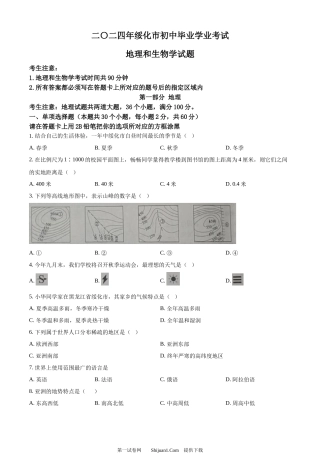 二〇二四年绥化市初中毕业学业考试
地理和生物学试题
考生注意：
1. 地理和生物学考试时间共 90 分钟
2. 所有答案都必须写在答题卡上所对应的题号后的指定区域内
第一部分 地理
考生注意：地理试题共两道大题，36 个小题，满分 100 分。
一、单项选择题（每小题 2 分，共 60 分）
请在答题卡上用 2B 铅笔把你的选项所对应的方框涂黑
1. 结合自己的生活体验，一年中绥化市白昼时间最长的季节是（ ）
A. 春季 B. 夏季 C. 秋季 D. 冬季
2. 在比例尺为 1：1000 的校园平面图上，畅畅同学量得教学楼到图书馆的图上距离为 4 厘米，则它们之间
的实地距离是（ ）
A. 400 米 B. 40 米 C. 4 米 D. 0.4 米
3. 下列等高线地形图中，表示山峰的数字是（ ）
A. ① B. ② C. ③ D. ④
4. 今年九月末，我们学校将召开秋季运动会，最理想的天气是（ ）
A. B. C. D.
5. 小华同学家在黑龙江省绥化市，其家乡的气候特点是（ ）
A. 夏季高温多雨，冬季寒冷干燥 B. 全年高温多雨
C. 冬季温和多雨，夏季炎热干燥 D. 全年温和湿润
6. 下列属于世界人口分布稀疏的地区是（ ）
A. 欧洲西部 B. 亚洲东部
C. 亚洲南部 D. 终年严寒的高纬度地区
7. 世界上使用范围最广的语言是
A. 英语 B. 法语 C. 俄语 D. 阿拉伯语
8. 亚洲的地势特点是（ ）
A. 东高西低 B. 南高北低 C. 中高周低 D. 周高中低
第一试卷网 Shijuan1.Com 提供下载